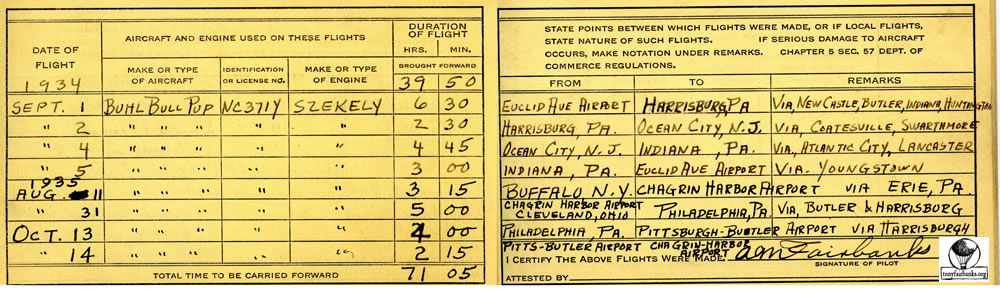 DATE OF FLIGHT
AIRCRAFT AND ENGINE USED ON THESE FLIGHTS
DURATION OF FLIGHT
MAKE OR TYPE OF AIRCRAFT
IDENTIFICATION OR LICENSE NO.
MAKE OR TYPE OF ENGINE
HRS. MIN.
BROUGHT FORWARD
1934 39 50
SEPT. 1 BUHL BULL PUP NC371Y SZEKELY 6 30
" 2 " " " " " 2 30
" 4 " " " " " 4 45
" 5 " " " " " 3 00
1935
AUG. 11 " " " " " 3 15
" 31 " " " " " 5 00
OCT. 13 " " " " " 4 00
" 14 " " " " " 2 15
TOTAL TIME TO BE CARRIED FORWARD 71 05
STATE POINTS BETWEEN WHICH FLIGHTS WERE MADE, OR IF LOCAL FLIGHTS,
STATE NATURE OF SUCH FLIGHTS. IF SERIOUS DAMAGE TO AIRCRAFT
OCCURS, MAKE NOTATION UNDER REMARKS. CHAPTER 5 SEC. 57 DEPT. OF
COMMERCE REGULATIONS.
FROM TO REMARKS
EUCLID AVE AIRPORT HARRISBURG, PA VIA, NEW CASTLE, BUTLER, INDIANA, HUNTINGTON
HARRISBURG, PA. OCEAN CITY, N.J. VIA, COATESVILLE, SWARTHMORE
OCEAN CITY, N.J. INDIANA, PA. VIA, ATLANTIC CITY, LANCASTER
INDIANA, PA. EUCLID AVE AIRPORT VIA. YOUNGSTOWN
BUFFALO N.Y. CHAGRIN HARBOR AIRPORT VIA ERIE, PA.
CHAGRIN HARBOR AIRPORT
CLEVELAND, OHIO PHILADELPHIA, PA. VIA, BUTLER & HARRISBURG
PHILADELPHIA, PA. PITTSBURGH-BUTLER AIRPORT VIA HARRISBURGH
PITTS-BUTLER AIRPORT CHAGRIN-HARBOR AIRPORT
I CERTIFY THE ABOVE FLIGHTS WERE MADE. A M Fairbanks
SIGNATURE OF PILOT
ATTESTED BY
tonyfairbanks.org